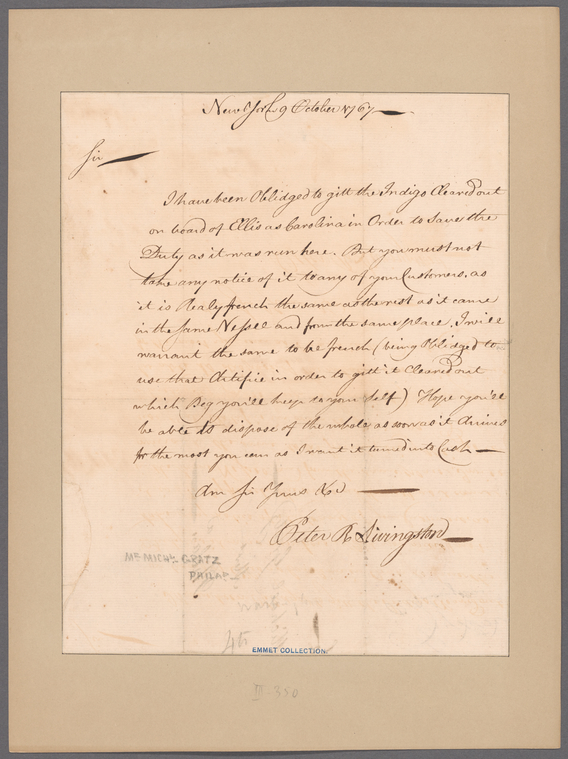 New York 9 October 1767
Sir
I have been Oblidged to gitt the Indigo Cleared out
on board of Ellis as Carolina in Order to Save the
Duty as it was run here. But you must not
take any notice of it to any of your Customers, as
it is Realy french the same as the rest as it came
in the same Vessel and from the same place, I will
warrant the same to be french (being Oblidged to
use that Artifice in order to gitt it Cleared out
which Beg you'll keep to your Self) Hope you'll
be able to dispose of the whole as soon as it Arrives
for the most you can as I want it turned into Cash
Am Sir Yours &c
Peter R Livingston
Mr. MICHL. GRATZ
PHILAD
4th
EMMET COLLECTION
II-350